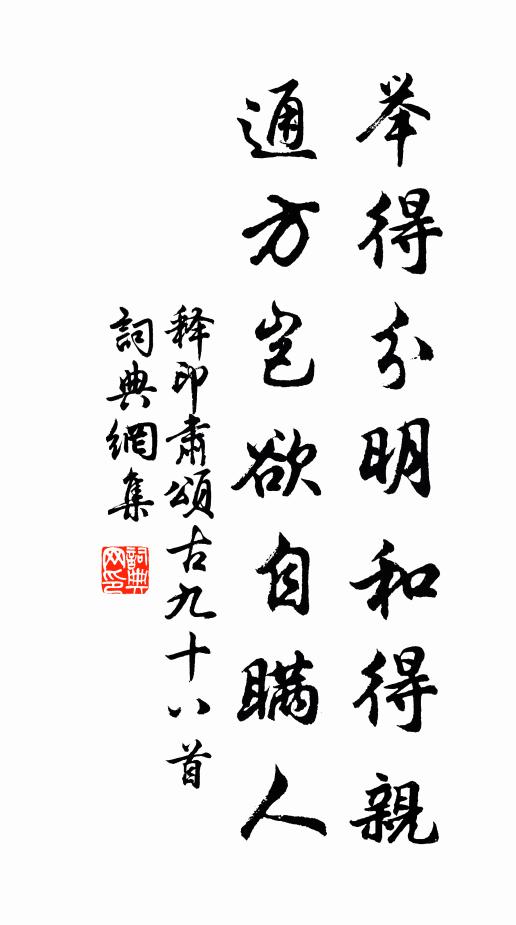 举得分明和得親
通方岂欲自瞞人
释印肃頌古九十八首
詞典網集
詞典網印